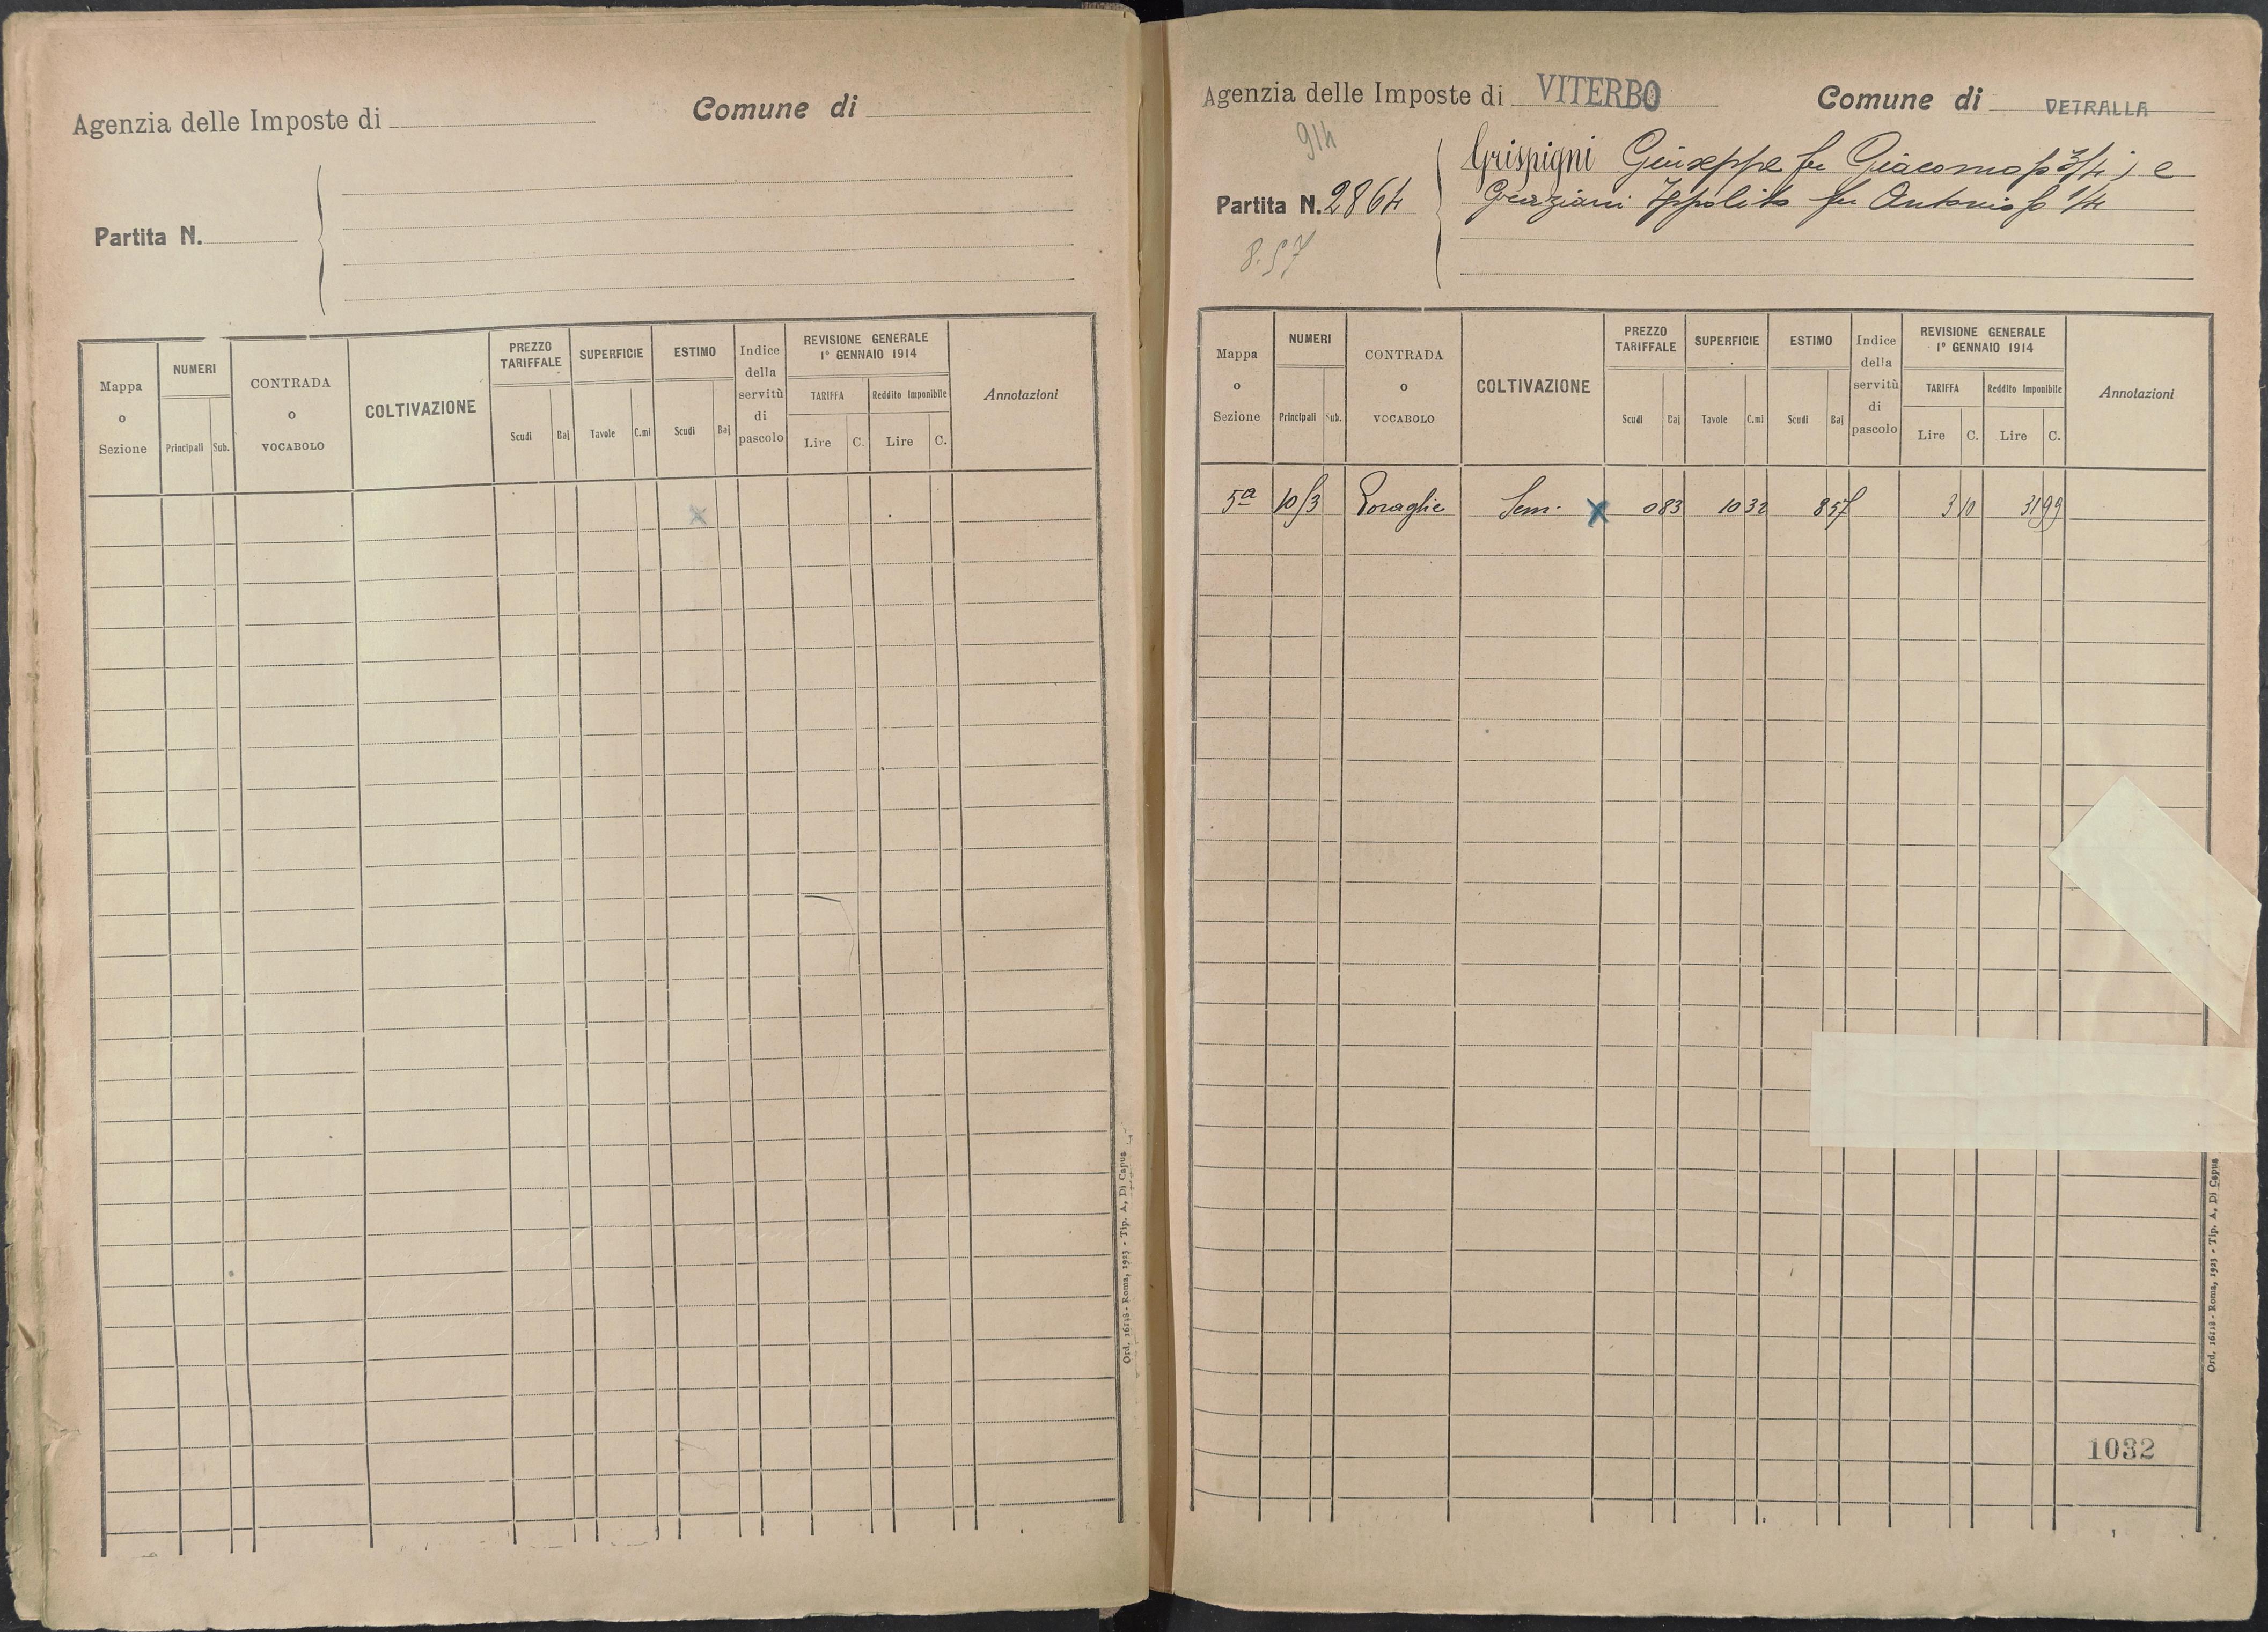 Agenzia delle Imposte di
Comune di
Partita N.
Mappa o Sezione
NUMERI
Principali Sub.
CONTRADA o VOCABOLO
COLTIVAZIONE
PREZZO TARIFFALE
Scudi Baj
SUPERFICIE
Tavole C.mi
ESTIMO
Scudi Baj
Indice della servitù di pascolo
REVISIONE GENERALE
1° GENNAIO 1914
TARIFFA
Lire C.
Reddito Imponibile
Lire C.
Annotazioni
Ord. 16118 - Roma, 1923 - Tip. A. Di Capua
Agenzia delle Imposte di VITERBO
Comune di VETRALLA
914
Partita N. 2864
8.57
Grispigni Giuseppe fu Giacomo p 3/4 ; e
Graziani Ippolito fu Antonio p 1/4
Mappa o Sezione
NUMERI
Principali Sub.
CONTRADA o VOCABOLO
COLTIVAZIONE
PREZZO TARIFFALE
Scudi Baj
SUPERFICIE
Tavole C.mi
ESTIMO
Scudi Baj
Indice della servitù di pascolo
REVISIONE GENERALE
1° GENNAIO 1914
TARIFFA
Lire C.
Reddito Imponibile
Lire C.
Annotazioni
5a 10/3 Sem. x 0 83 10 32 8 57 3 10 31 99
1032
Ord. 16118 - Roma, 1923 - Tip. A. Di Capua